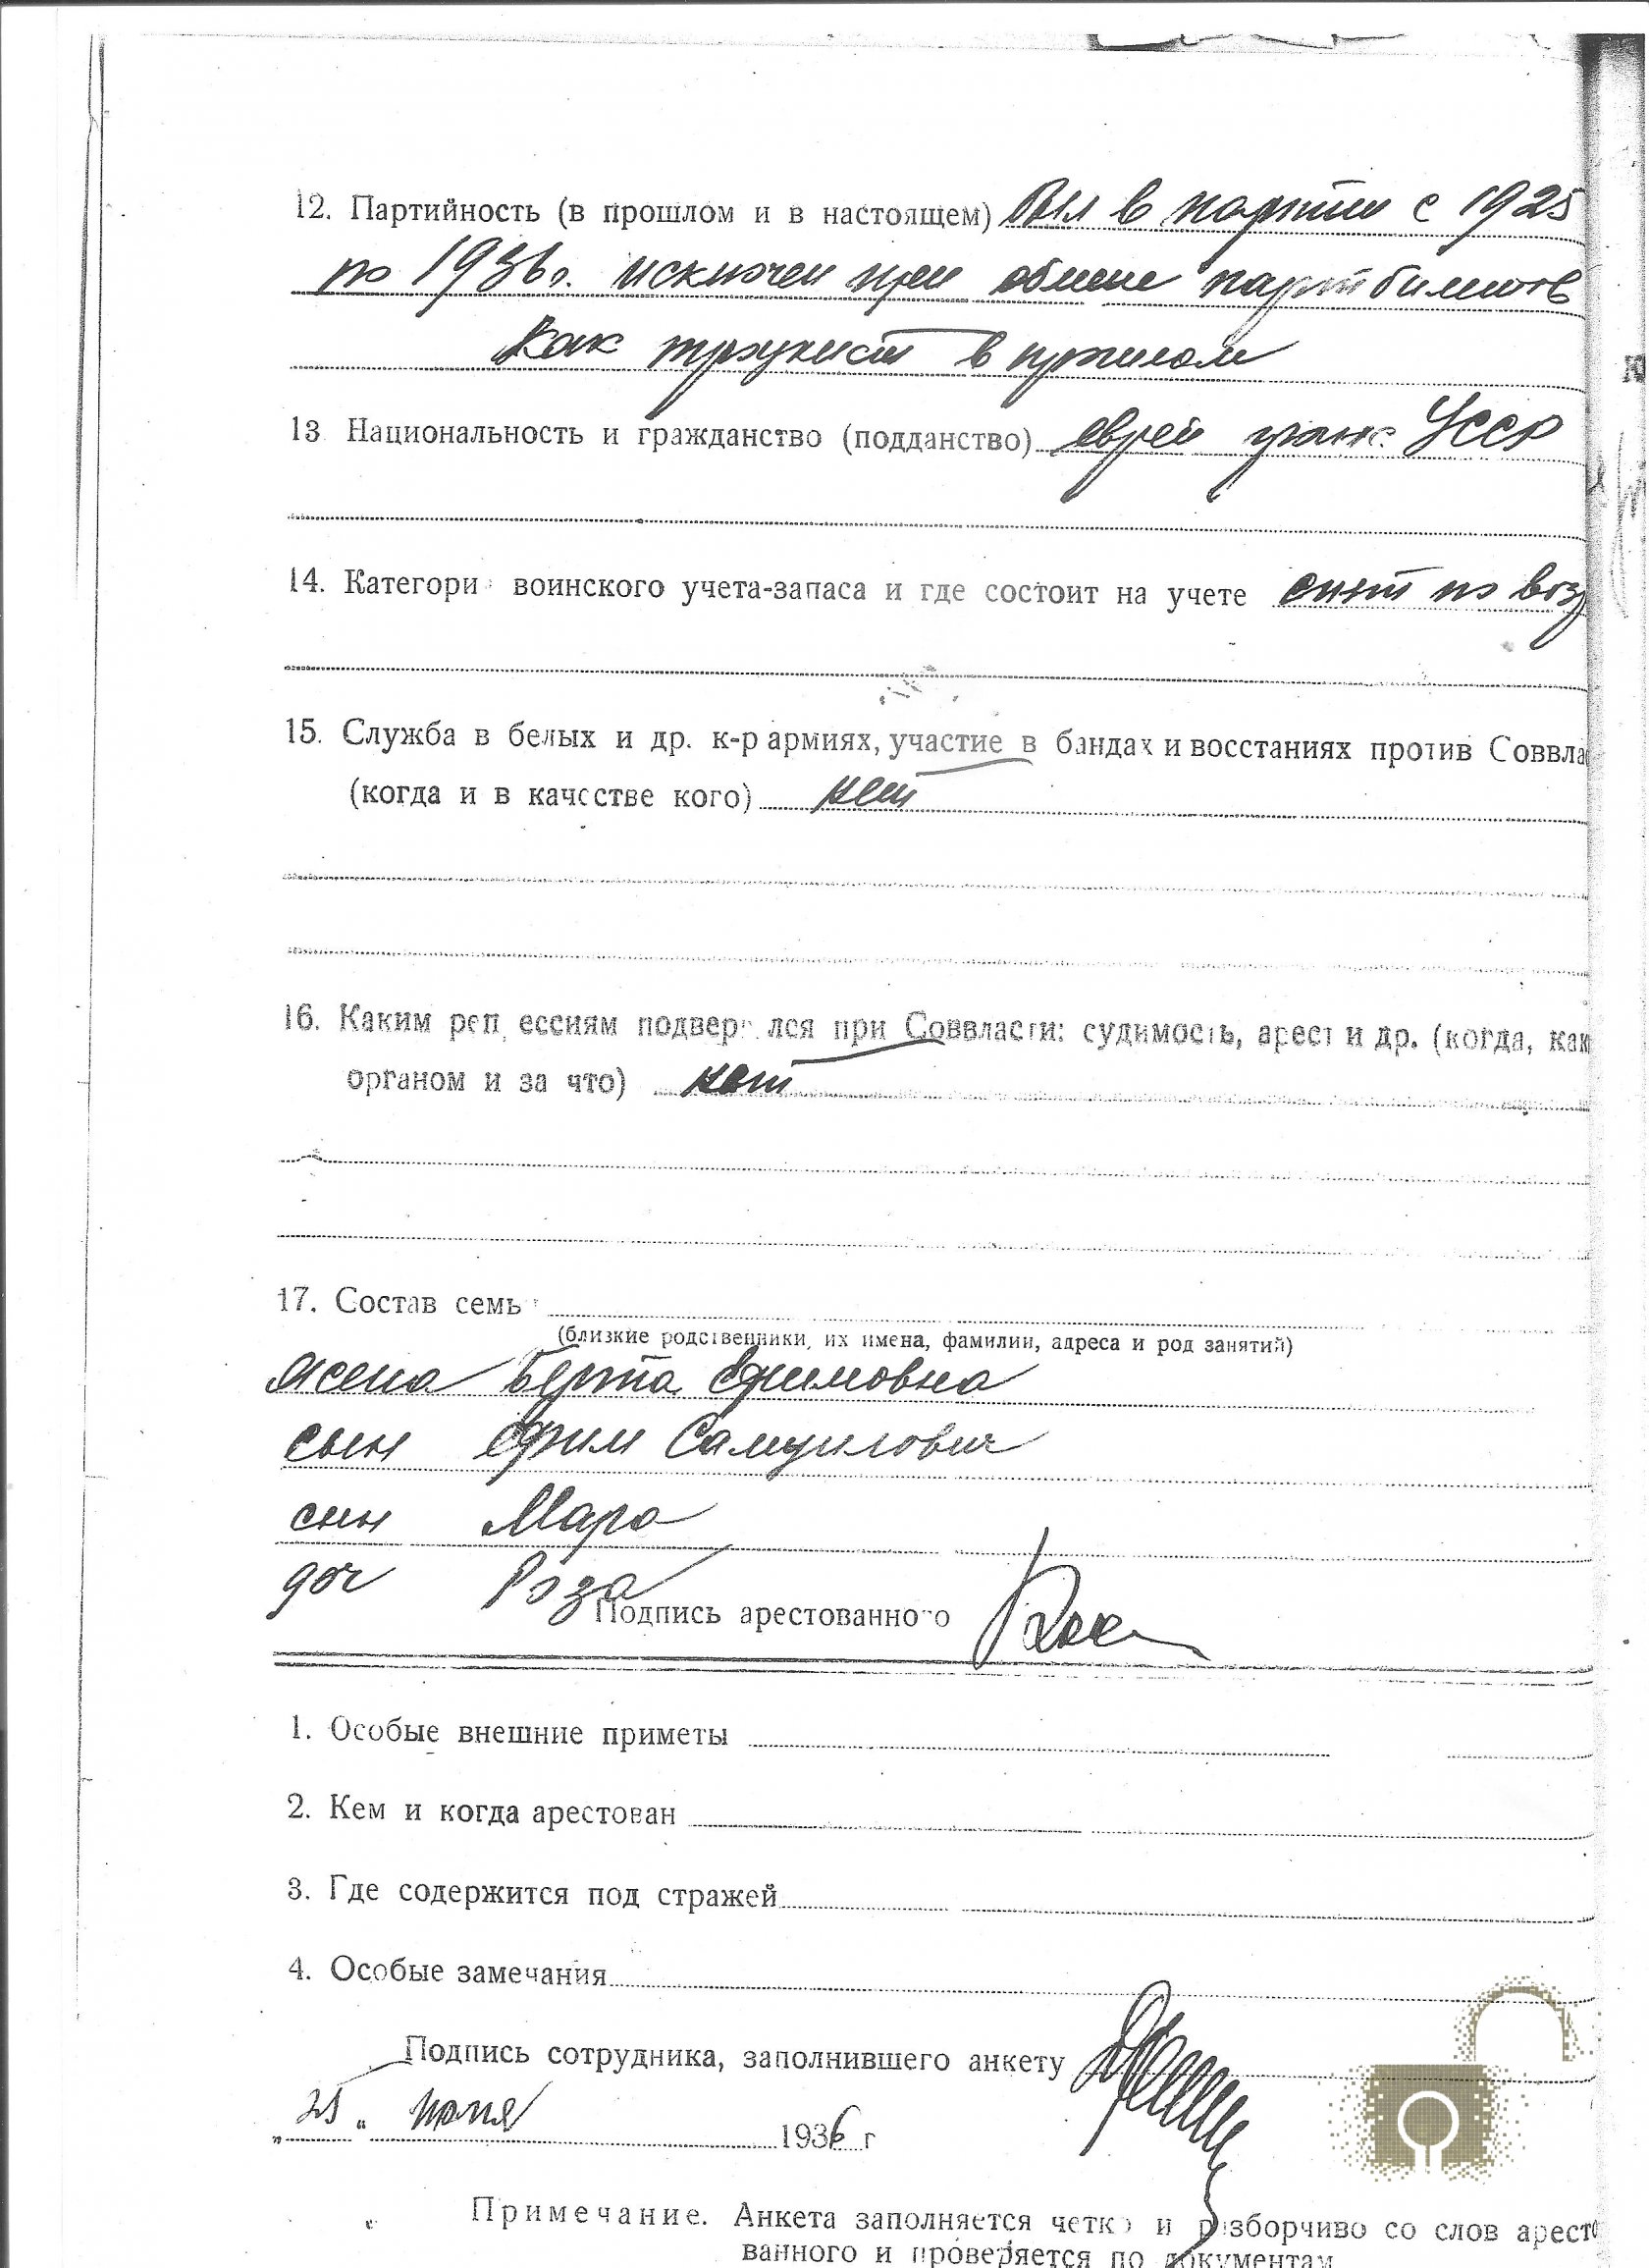 12. Партийность (в прошлом и в настоящем) был в партии с 1925
по 1936 г. исключен при обмене партбилетов
как троцкист в прошлом
13 Национальность и гражданство (подданство) еврей граж. УССР
14. Категори воинского учета-запаса и где состоит на учете снят по воз
15. Служба в белых и др. к-р армиях, участие в бандах и восстаниях против Соввла
(когда и в качестве кого) нет
16. Каким реп ессиям подвер лся при Соввласти: судимость, арест и др. (когда, как
органом и за что) нет
17. Состав семь
(близкие родственники, их имена, фамилии, адреса и род занятий)
жена Берта Ефимовна
сын Ефим Самуилович
сын Мара
доч Роза
Подпись арестованного
1. Особые внешние приметы
2. Кем и когда арестован
3. Где содержится под стражей
4. Особые замечания
Подпись сотрудника, заполнившего анкету
"25" 1936 г
Примечание. Анкета заполняется четко и разборчиво со слов аресто
ванного и проверяется по документам